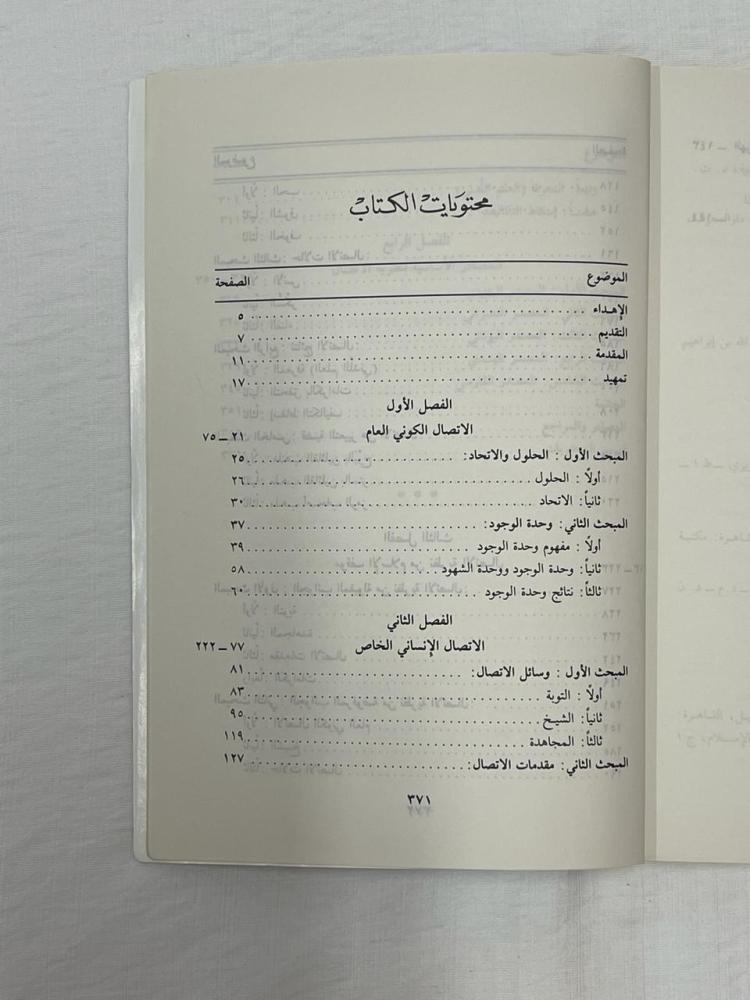 محتويات الكتاب
الموضوع الصفحة
الإهـداء ٥
التقديم ٧
المقدمة ١١
تمهيد ١٧
الفصل الأول
الاتصال الكوني العام ٢١ ــ ٧٥
المبحث الأول : الحلول والاتحاد: ٢٥
أولاً : الحلول ٢٦
ثانياً: الاتحاد ٣٠
المبحث الثاني: وحدة الوجود: ٣٧
أولاً : مفهوم وحدة الوجود ٣٩
ثانياً: وحدة الوجود ووحدة الشهود ٥٨
ثالثاً: نتائج وحدة الوجود ٦٠
الفصل الثاني
الاتصال الإنساني الخاص ٧٧ ــ ٢٢٢
المبحث الأول : وسائل الاتصال: ٨١
أولاً : التوبة ٨٣
ثانياً: الشيخ ٩٥
ثالثاً: المجاهدة ١١٩
المبحث الثاني: مقدمات الاتصال: ١٢٧
٣٧١